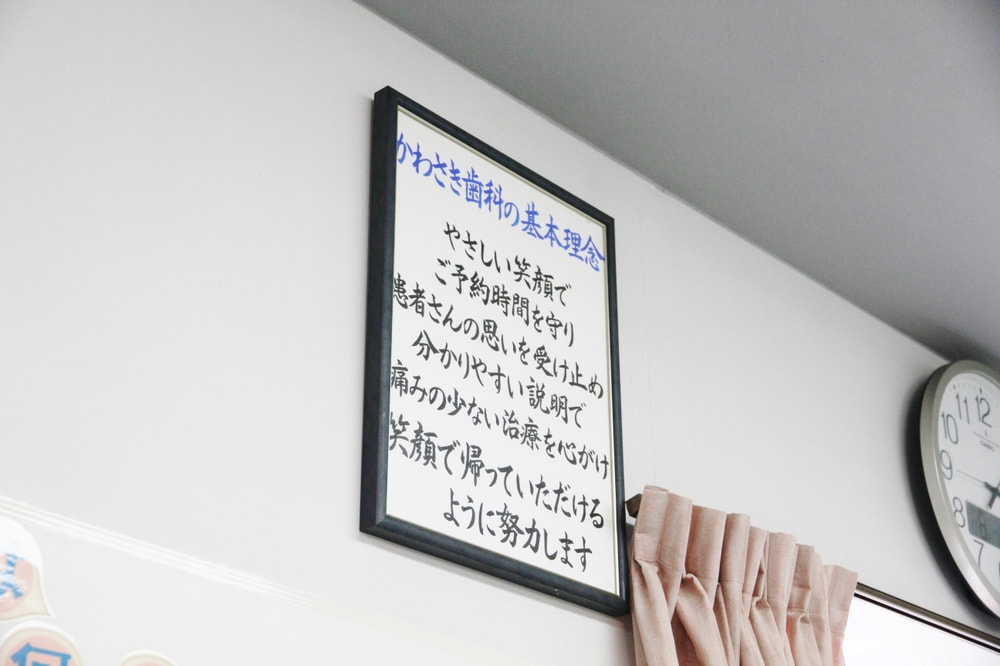 かわさき歯科の基本理念
やさしい笑顔で
ご予約時間を守り
患者さんの思いを受け止め
分かりやすい説明で
痛みの少ない治療を心がけ
笑顔で帰っていただける
ように努力します
11 12
10
9
8
7
何